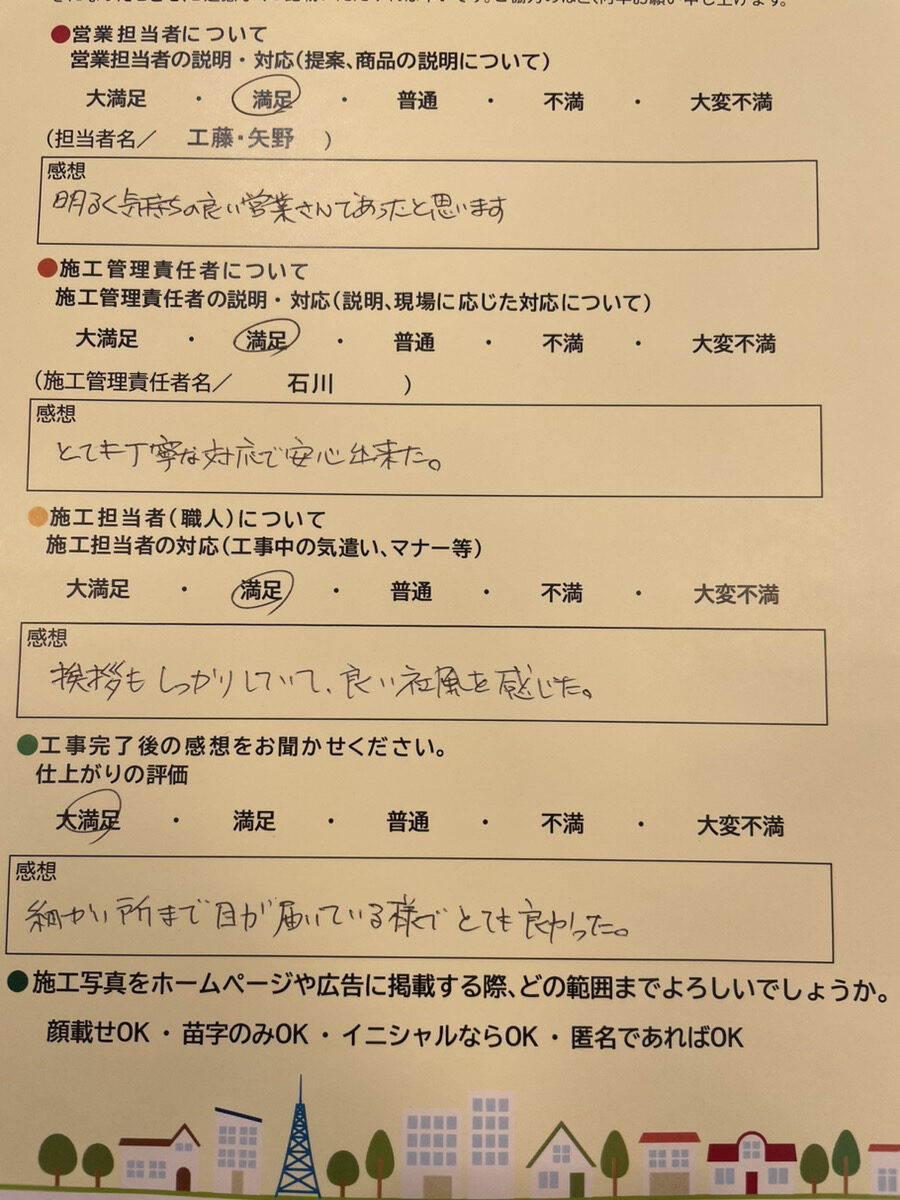 ●営業担当者について
営業担当者の説明・対応(提案、商品の説明について)
大満足 ・ 満足 ・ 普通 ・ 不満 ・ 大変不満
(担当者名/ 工藤・矢野 )
感想
明るく気持ちの良い営業さんであったと思います
●施工管理責任者について
施工管理責任者の説明・対応(説明、現場に応じた対応について)
大満足 ・ 満足 ・ 普通 ・ 不満 ・ 大変不満
(施工管理責任者名/ 石川 )
感想
とても丁寧な対応で安心出来た。
●施工担当者(職人)について
施工担当者の対応(工事中の気遣い、マナー等)
大満足 ・ 満足 ・ 普通 ・ 不満 ・ 大変不満
感想
挨拶もしっかりしていて、良い社風を感じた。
●工事完了後の感想をお聞かせください。
仕上がりの評価
大満足 ・ 満足 ・ 普通 ・ 不満 ・ 大変不満
感想
細かい所まで目が届いている様でとても良かった。
●施工写真をホームページや広告に掲載する際、どの範囲までよろしいでしょうか。
顔載せOK ・ 苗字のみOK ・ イニシャルならOK ・ 匿名であればOK